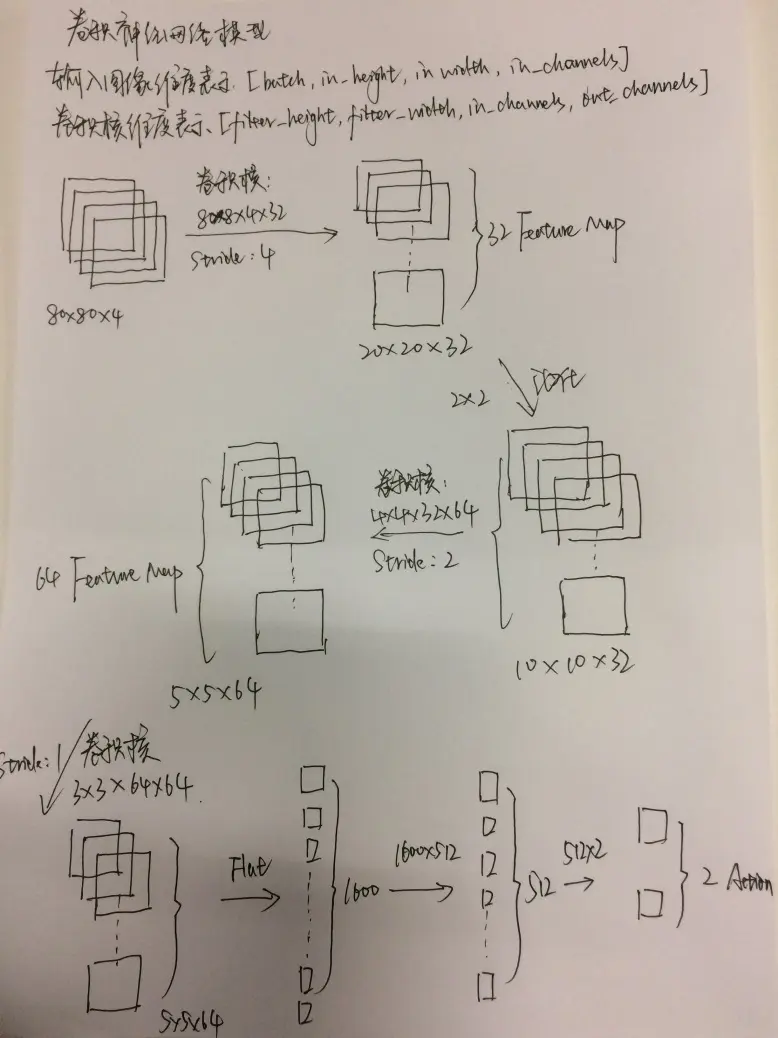 卷积神经网络模型
输入图像维度表示. [batch, in_height, in width, in_channels]
卷积核维度表示. [filter_height, filter_width, in_channels, out_channels]
卷积核:
8x8x4x32
Stride: 4
80x80x4
32 Feature Map
20x20x32
2x2
卷积核:
4x4x32x64
Stride: 2
64 Feature Map
5x5x64
10x10x32
Stride: 1
卷积核
3x3x64x64
Flat
1600
1600x512
512
512x2
2 Action
5x5x64